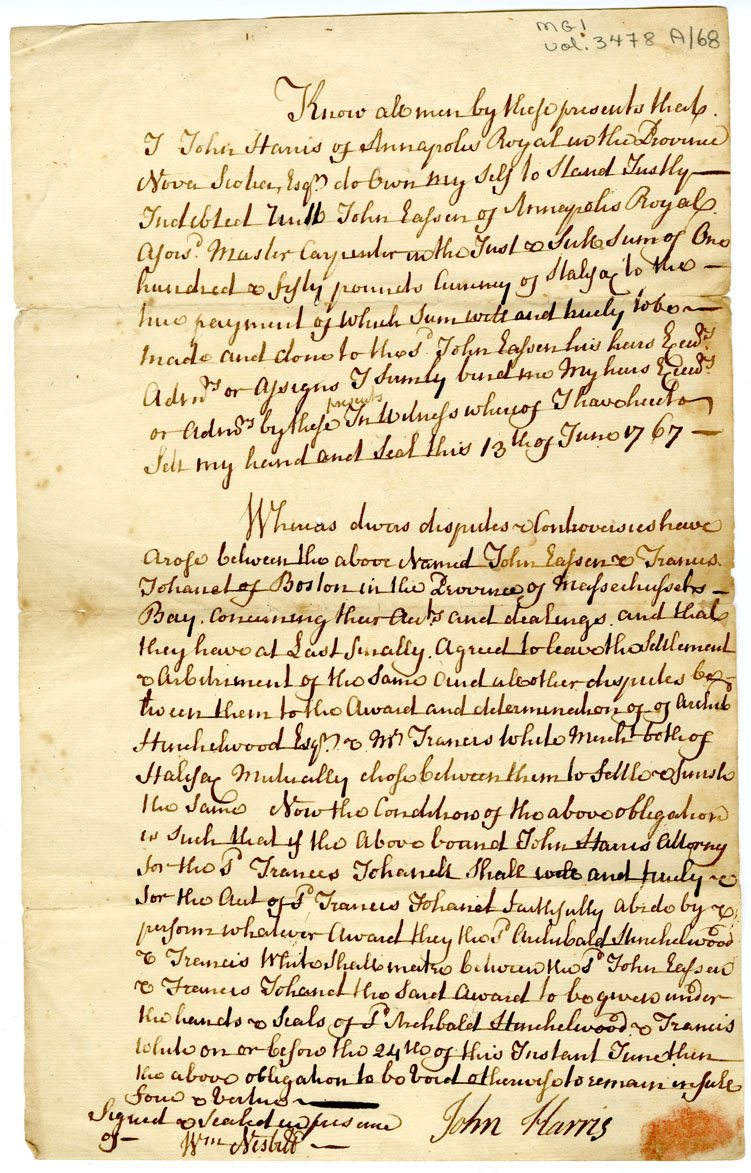 MG1
Vol. 3478 A/68
Know all men by these presents that
I John Harris of Annapolis Royal in the Province
Nova Scotia, Esqr. do Own my Self to Stand Justly
Indebted Unto John Eassen of Annapolis Royal
Afors.d Master Carpenter in the Just & full Sum of One
hundred & fifty pounds Currency of Halifax to the
true payment of which Sum will and truely to be
made and done to the Sd. John Eassen his heirs Execrs.
Admrs or Assigns I firmly bind me My heirs Execrs.
or Admrs by these presents In Witness whereof I have hereto
Sett my hand and Seal this 13th of June 1767
Whereas divers disputes & Controversies have
arose between the above Named John Eassen & Francis
Johanet of Boston in the Province of Massechussets
Bay. Concerning their Accts and dealings. and that
they have at Last finally. Agreed to leave the Settlement
& Arbitriment of the Same and all other disputes be
tween them to the Award and determination of of Archib
Hinchelwood Esqr. & Mr Francis White Mercht both of
Halifax Mutually chose between them to Settle & finish
the Same Now the Condition of the above obligation
is Such that if the Above bound John Harris Attorny
for the Sd Francis Johanett Shall well and truely &
for the Act of Sd Francis Johanet faithfully abide by &
perform whatever Award they the Sd Archibald Hinchelwood
& Francis White Shall make between the Sd John Eassen
& Francis Johanet the Said Award to be given under
the hands & Seals of Sd Archbald Hinchelwood & Francis
White on or before the 24th of this Instant June then
the above obligation to be Void otherwise to remain in full
force & Vertue
Signed & Sealed in presence
of John Harris
Wm Nesbitt